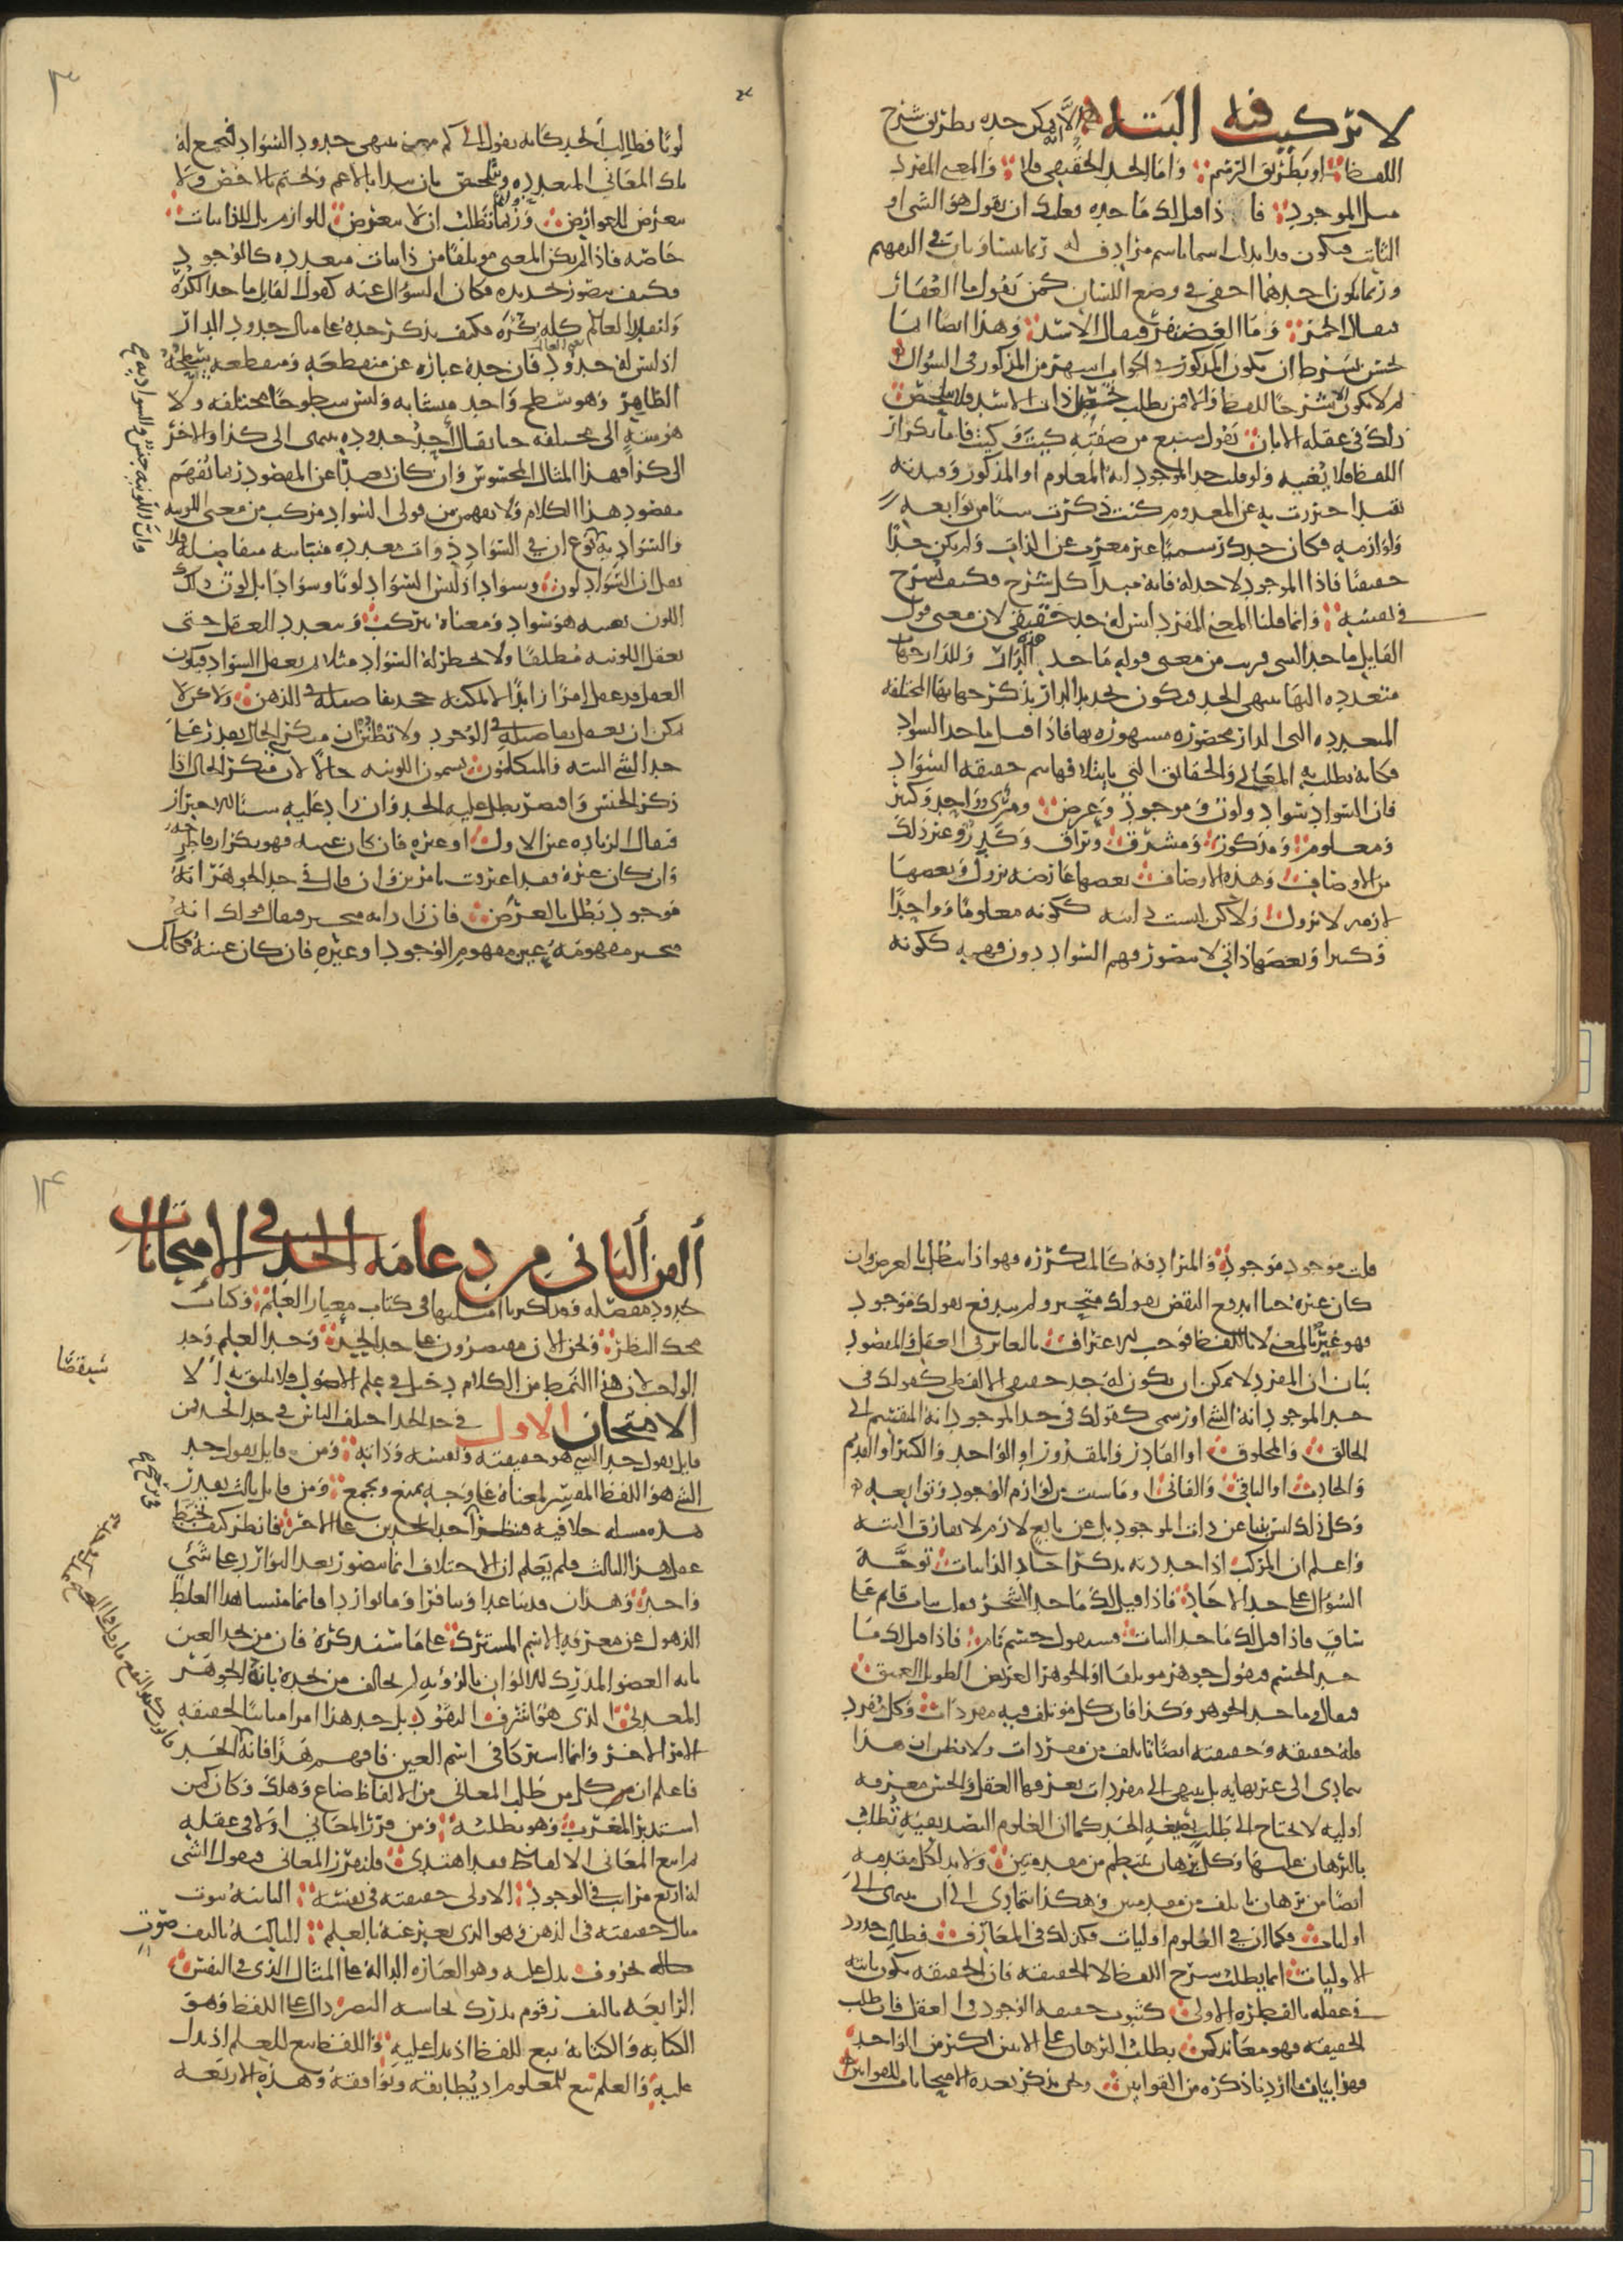 لا تركيب فيه البتة لا يمكن حده بطريق شرح
اللفظ او بطريق الرسم واما الحد الحقيقي فلا والمعنى المفرد
مثل الموجود فاذا قيل لك ما حده فعليك ان تقول هو الشي او
الثابت فيكون قد ابدلت اسما باسم مرادف له ربما يتساويان في التفهيم
وربما يكون احدهما اخفى في وضع اللسان كمن يقول ما العقار
فيقال الخمر وما الغضنفر فيقال الاسد وهذا ايضا انما
يحسن بشرط ان يكون المذكور في الجواب اشهر من المذكور في السؤال
ثم لا يكون الا شرحا للفظ والا فمن يطلب تلخيص ذات الاسد فلا يتلخص
ذلك في عقله الا بان يقول سبع من صفته كيت وكيت فاما تكرار
اللفظ فلا يغنيه ولو قلت حد الموجود انه المعلوم او المذكور وقيدته
بقيد احترزت به عن المعدوم كنت ذكرت شيا من توابعه
ولوازمه فكان حدك رسميا غير معرب عن الذات ولم يكن حدا
حقيقيا فاذا الموجود لا حد له فانه مبدا كل شرح فكيف يشرح
في نفسه وانما قلنا المعنى المفرد ليس له حد حقيقي لان معنى قول
القايل ما حد الشي قريب من معنى قوله ما حد هذه الدار وللدار جهات
متعددة اليها ينتهي الحد فيكون تحديد الدار بذكر جهاتها المختلفة
المتعددة التي الدار محصورة مسورة بها فاذا قيل ما حد السواد
فكانه يطلب به المعاني والحقايق التي بايتلافها تتم حقيقة السواد
فان السواد سواد ولون وموجود وعرض ومرئي وواحد وكثير
ومعلوم ومذكور ومشرق وبراق وكدر وغير ذلك
من الاوصاف وهذه الاوصاف بعضها عارضة تزول وبعضها
لازمة لا تزول ولاكن ليست ذاتية ككونه معلوما وواحدا
وكثيرا وبعضها ذاتي لا يتصور فهم السواد دون فهمه ككونه
لونا فطالب الحد كانه يقول الى كم معنى تنتهي حدود السواد لتجمع له
تلك المعاني المتعددة ويتلخص بان يبدا بالاعم ويختم بالاخص ولا
يتعرض للعوارض وربما يطلب ان لا يتعرض للوازم بل للذاتيات
خاصة فاذا لم يكن المعنى موتلفا من ذاتيات متعددة كالوجود
فكيف يتصور تحديده فكان السؤال عنه كقول القايل ما حد الكرة
ولنقدر العالم كله كرة فكيف يذكر حده على مثال حدود الدار
اذ ليس له حدود فان حده عبارة عن منقطعه ومنقطعه سطحه
الظاهر وهو سطح واحد متشابه وليس سطوحا مختلفة ولا
هو منته الى مختلفة حتى يقال احد حدوده ينتهي الى كذا والاخر
الى كذا فهذا المثال المحسوس وان كان بعيدا عن المقصود ربما يفهم
مقصود هذا الكلام ولا يفهم من قولي السواد مركب من معنى اللونية
والسوادية نوع ان في السواد ذوات متعددة متباينة متفاصلة فلا
تقل ان السواد لون وسواد اذ ليس السواد لونا وسوادا بل لون ذلك
اللون بعينه هو سواد ومعناه يتركب ويتعدد للعقل حتى
يعقل اللونية مطلقا ولا يخطر له السواد مثلا ثم يعقل السواد فيكون
العقل قد عقل امرا زايدا لا يمكنه جحد تفاصيله في الذهن ولاكن لا
يمكن ان يعتقد تفاصيله في الوجود ولا تظنن ان منكر الحال يقدر على
حد الشي البتة والمتكلمون يسمون اللونية حالا لان منكر الحال اذا
ذكر الجنس واقتصر بطل عليه الحد وان زاد عليه شيا للاحتراز
فيقال الزيادة عين الاول او غيره فان كان عينه فهو تكرار فاطرحه
وان كان غيره فقد اعترفت بامرين وان قال في حد الجوهر انه
موجود بطل بالعرض فان زاد انه متحيز فيقال قولك انه
متحيز مفهومه عين مفهوم الوجود او غيره فان كان عينه فكانك
وان اللونية جنس والسوادية
قلت موجود موجود والمترادفة كالمتكررة فهو اذا يبطل بالعرض وان
كان غيره حتى اندفع النقض بقولك متحيز ولم يندفع بقولك موجود
فهو غير بالمعنى لا باللفظ فوجب الاعتراف بالتغاير في العقل والمقصود
بيان ان المفرد لا يمكن ان يكون له حد حقيقي الا لفظي كقولك في
حد الموجود انه الشي او رسمي كقولك في حد الموجود انه المنقسم الى
الخالق والمخلوق او القادر والمقدور او الواحد والكثير او القديم
والحادث او الباقي والفاني او ما شيت من لوازم الوجود وتوابعه
وكل ذلك ليس ينبي عن ذات الموجود بل عن تابع لازم لا يفارق البتة
واعلم ان المركب اذا حددته بذكر احاد الذاتيات توجه
السؤال على حد الاحاد فاذا قيل لك ما حد الشجر فقلت نبات قايم على
ساق فاذا قيل لك ما حد النبات فتقول جسم نام فاذا قيل لك ما
حد الجسم فتقول جوهر موتلف او الجوهر العريض الطويل العميق
فيقال وما حد الجوهر وكذا فان كل موتلف فيه مفردات وكل مفرد
فله حقيقة وحقيقته ايضا تاتلف من مفردات ولا تظن ان هذا
يتمادى الى غير نهاية بل ينتهي الى مفردات يعرفها العقل والحس معرفة
اولية لا تحتاج الى طلب بصيغة الحد كما ان العلوم التصديقية تطلب
بالبرهان عليها وكل برهان ينتظم من مقدمتين ولا بد لكل مقدمة
ايضا من برهان ياتلف من مقدمتين وهكذا يتمادى الى ان ينتهي الى
اوليات فكما ان في العلوم اوليات فكذلك في المعارف فطالب حدود
الاوليات انما يطلب شرح اللفظ لا الحقيقة فان الحقيقة تكون ثابتة
في عقله بالفطرة الاولى كثبوت حقيقة الوجود في العقل فان طلب
الحقيقة فهو معاند كمن يطلب البرهان على الاثنين اكثر من الواحد
فهذا بيان ما اردنا ذكره من القوانين ونحن نذكر بعده الامتحانات للقوانين
الفن الثاني من دعامة الحد في الامتحانات
لحدود مفصلة وقد اكثرنا امثلتها في كتاب معيار العلم وكتاب
محك النظر ونحن الان مقتصرون على حد الحد وحد العلم وحد
الواجب لان هذا النمط من الكلام دخيل في علم الاصول فلا يليق به الا
الامتحان الاول في حد الحد اختلف الناس في حد الحد فمن
قايل يقول حد الشي هو حقيقته ونفسه وذاته ومن قايل يقول حد
الشي هو اللفظ المفسر لمعناه على وجه يمنع ويجمع ومن قايل ثالث يقدر
هذه مسلة خلافية فينصر احد الحدين على الاخر فانظر كيف تخبط
عقل هذا الثالث فلم يعلم ان الاختلاف انما يتصور بعد التوارد على شي
واحد وهذان قد تباعدا وتنافرا وما تواردا فانما منشا هذا الغلط
الذهول عن معرفة الاسم المشترك على ما سنذكره فان من يحد العين
بانه العضو المدرك للالوان بالرؤية لم يخالف من يحده بانه الجوهر
المعدني الذي هو اشرف النقود بل حد هذا امرا مباينا لحقيقة
الامر الاخر وانما اشتركا في اسم العين فافهم هذا فانه الحد
فاعلم ان كل من طلب المعاني من الالفاظ ضاع وهلك وكان كمن
استدبر المغرب وهو يطلبه ومن قرر المعاني اولا في عقله
ثم اتبع المعاني الالفاظ فقد اهتدى فلنقرر المعاني فنقول الشي
له اربع مراتب في الوجود الاولى حقيقته في نفسه الثانية ثبوت
مثال حقيقته في الذهن وهو الذي يعبر عنه بالعلم الثالثة تاليف صوت
بحروف تدل عليه وهو العبارة الدالة على المثال الذي في النفس
الرابعة تاليف رقوم تدرك بحاسة البصر دالة على اللفظ وهو
الكتابة والكتابة تبع للفظ اذ تدل عليه واللفظ تبع للعلم اذ يدل
عليه والعلم تبع للمعلوم اذ يطابقه ويوافقه وهذه الاربعة